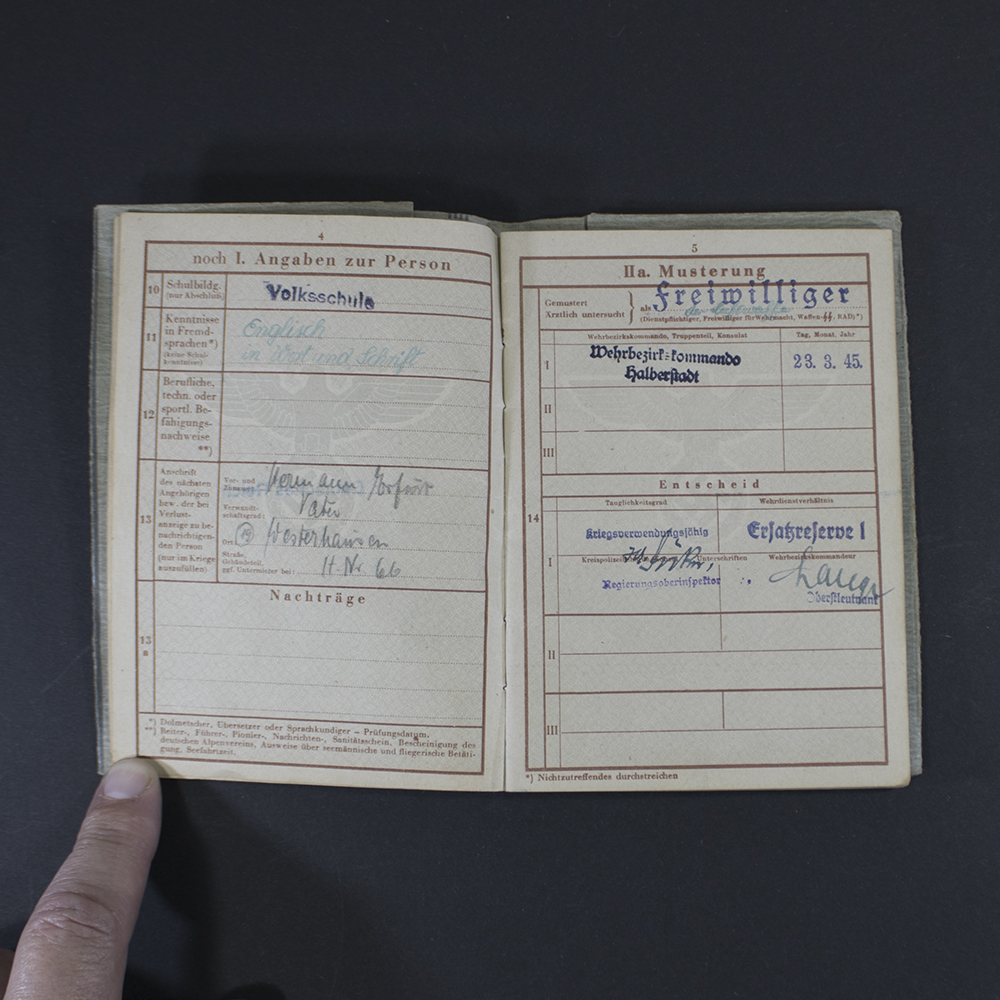 4
noch I. Angaben zur Person
10 Schulbildg. (nur Abschluß) Volksschule
11 Kenntnisse in Fremd-
sprachen*)
(keine Schul-
kenntnisse)
Englisch
in Wort und Schrift
12 Berufliche,
techn. oder
sportl. Be-
fähigungs-
nachweise
**)
13 Anschrift
des nächsten
Angehörigen
bzw. der bei
Verlust-
anzeige zu be-
nachrichtigen-
den Person
(nur im Kriege
auszufüllen)
Vor- und Zuname: Hermann
Verwandt-
schaftsgrad: Vater
Ort: (19) Westerhausen
Straße,
Gebäudeteil,
ggf. Untermieter bei: H. Nr. 66
Nachträge
13
a
*) Dolmetscher, Übersetzer oder Sprachkundiger – Prüfungsdatum.
**) Reiter-, Führer-, Pionier-, Nachrichten-, Sanitätsschein, Bescheinigung des
deutschen Alpenvereins, Ausweise über seemännische und fliegerische Betäti-
gung, Seefahrtzeit.
5
IIa. Musterung
Gemustert
Ärztlich untersucht } als Freiwilliger
der Luftwaffe
(Dienstpflichtiger, Freiwilliger für Wehrmacht, Waffen-SS, RAD)*)
Wehrbezirkskommando, Truppenteil, Konsulat
Tag, Monat, Jahr
I Wehrbezirkskommando
Halberstadt
23. 3. 45.
II
III
Entscheid
14
Tauglichkeitsgrad
Wehrdienstverhältnis
Kriegsverwendungsfähig
Ersatzreserve I
I Kreispolizei Unterschriften Wehrbezirkskommandeur
Regierungsoberinspektor
Oberstleutnant
II
III
*) Nichtzutreffendes durchstreichen